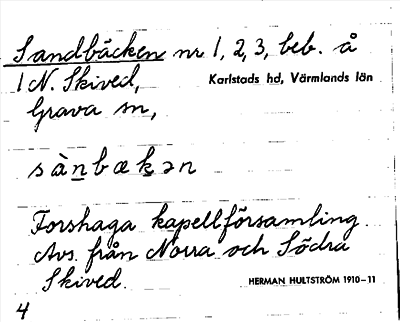 Sandbäcken nr 1, 2, 3, beb. å
1 N. Skived, Karlstads hd, Värmlands län
Grava sn,
sànbækən
Forshaga kapellförsamling.
Avs. från Norra och Södra
Skived. HERMAN HULTSTRÖM 1910–11
4